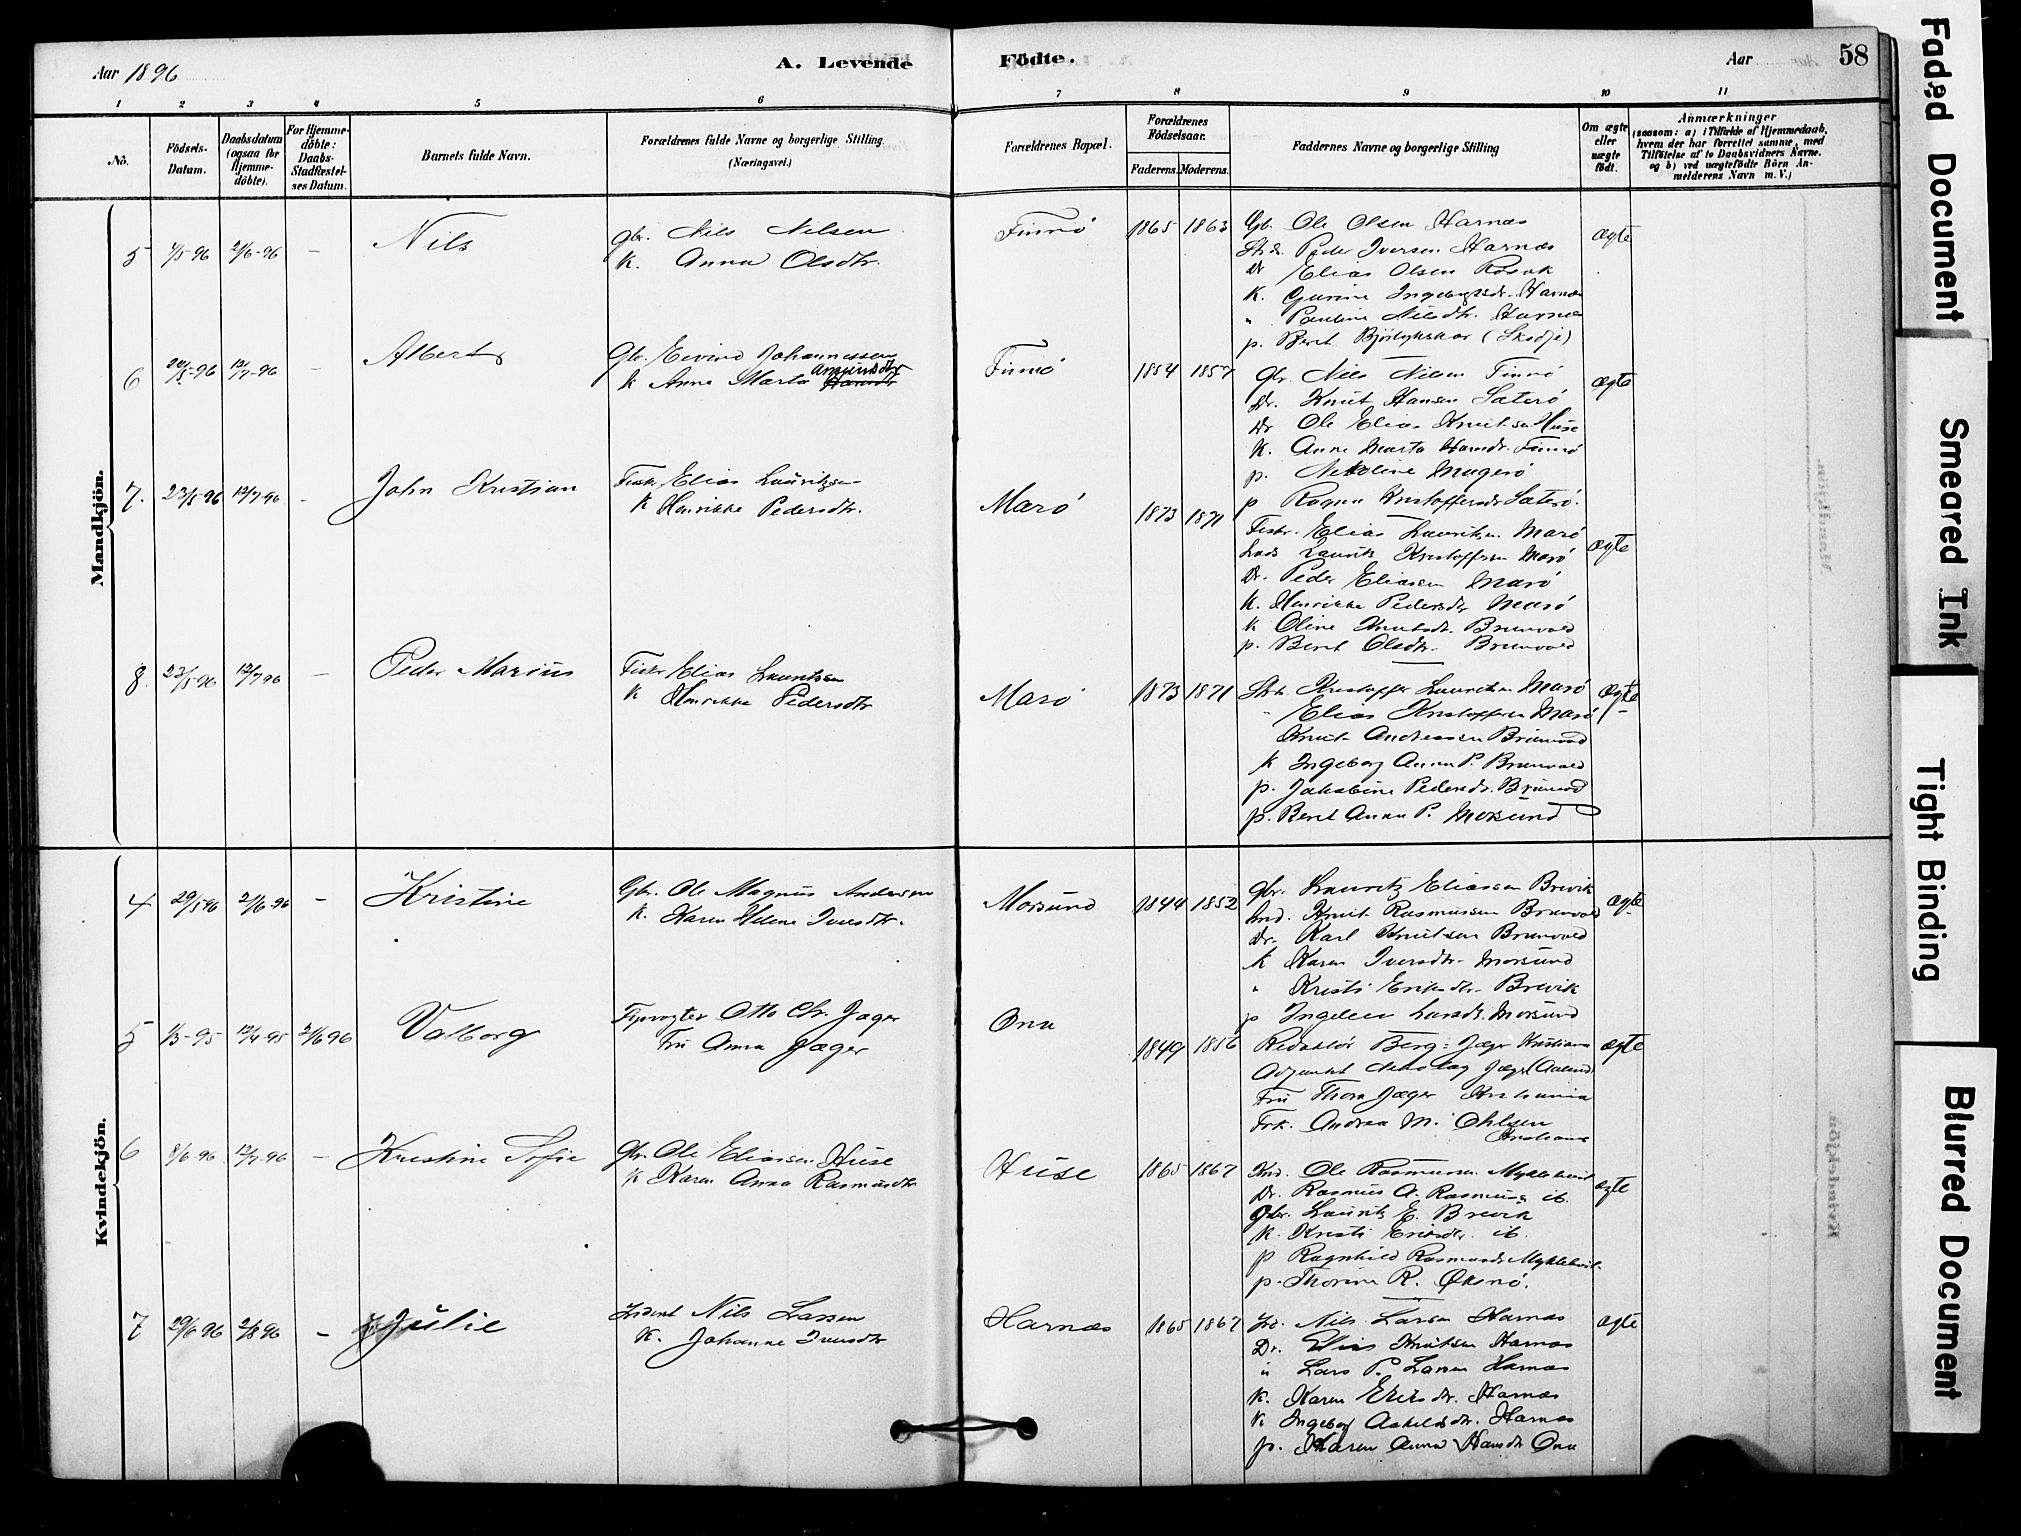 Aar 1896
A. Levende
Födte.
Aar
58
1 2 3 4 5 6 7 8 9 10 11
No.
Födsels-
Datum.
Daabsdatum
(ogsaa for
Hjemme-
döbte).
For Hjemme-
döbte:
Daabs-
Stadfæstel-
ses Datum.
Barnets fulde Navn.
Forældrenes fulde Navne og borgerlige Stilling.
(Næringsvei.)
Forældrenes Bopæl.
Forældrenes
Födselsaar.
Faderens. Moderens.
Faddernes Navne og borgerlige Stilling
Om ægte
eller
uægte
födt.
Anmærkninger
(saasom: a) i Tilfælde af Hjemmedaab,
hvem der har forrettet samme, med
Tilföielse af to Daabsvidners Navne.
og b) ved uægtefödte Börn An-
melderens Navn m. V.)
Mandkjön.
5 7/5-96 21/6-96 – Nils
Gbr. Nils Nilsen
K. Anna Olsdtr.
Finnö 1865 1863
Gb. Ole Olsen Harnæs
Peder Iversen Harnæs
Dr Elias Olsen
K. Gurine Harnæs
" Pauline Nilsdtr. Harnæs
p. Beret (Skodje)
ægte
6 12/7-96 – Albert
Gbr. Eivind Johannessen
K Anne Marta Amundsdtr
Finnö 1854 1857
Gbr. Nils Nilsen Finnö
Dr. Knut Hansen Säterö
Dr Ole Elias Knutsen Huse
K. Anne Marta Hansdr. Finnö
p. Magerö
p Ragna Kristoffersdr Sæterö.
ægte
7. 23/5-96 12/7-96 – John Kristian
Fisk. Elias Lauritzsen
K Henrikke Pedersdtr.
Marö 1873 1871
Fiskr. Elias Lauritsen Marö
Laurits Kristoffersen Marö
Dr. Peder Eliassen Marö
K. Henrikke Pedersdtr Marö
K Oline Knutsdtr. Brunvold
p. Beret Olsdtr. Brunvold
ægte
8. 23/5-96 12/7 96 – Peder Marius
Fiskr Elias Lauritsen
K Henrikke Pedersdtr
Marö 1873 1871
Kristoffer Lauritsen Marö
Elias Kristoffersen Marö
Knut Andreassen Brunvold
K Ingeborg Anna P. Brunvold
p. Jakobine Pedersdr. Brunvold
p. Beret Anna P. Morsund
ægte
Kvindekjön.
4 29/5 96 21/6-96 – Kristine
Gbr. Ole Magnus Andersen
K. Karen Helene Iversdtr.
Morsund 1844 1852
Gbr. Lauritz Eliassen Brevik
Ind. Knut Rasmussen Brunvold
Dr. Karl Knutsen Brunvold
K Karen Iversdtr. Morsund
" Kristi Eriksdtr. Brevik
p Larsdr. Morsund
ægte
5 1/3-95 12/4-95 21/6 96 Valborg
Fyrvogter Otto Chr. Jæger
Fru Anna Jæger
Ona 1849 1856
Redaktör Berg-Jæger Kristiania
Adjunkt Nikolay Jæger (Aalesund)
Fru Thora Jæger Kristiania
Frk. Andrea M. Ohlsen
Kristiania
ægte
6 8/6-96 12/7-96 – Kristine Sofie
Gbr. Ole Eliassen Huse
K Karen Anna Rasmusdtr
Huse 1865 1867
Ind. Ole Rasmussen Myklebust
Dr. Rasmus A. Rasmussen ib.
Gbr. Laurits E. Brevik
K. Kristi Eriksdr. ib.
p Ragnhild Rasmusdr Myklebust
p. Thorine R. Öksnö.
ægte
7 29/6 96 2/8 96 – Julie
Nils Larsen
K. Johanne Iversdtr
Harnæs 1865 1867
Nils Larsen Harnæs
Dr. Elias Knutsen Harnæs
" Lars P. Larsen Harnæs
K. Karen Eriksdtr. Harnæs
K Ingeborg Askildsdtr. Harnæs
p. Karen Anna Hansdtr Ona
ægte
Faded Document
Smeared Ink
Tight Binding
Blurred Document